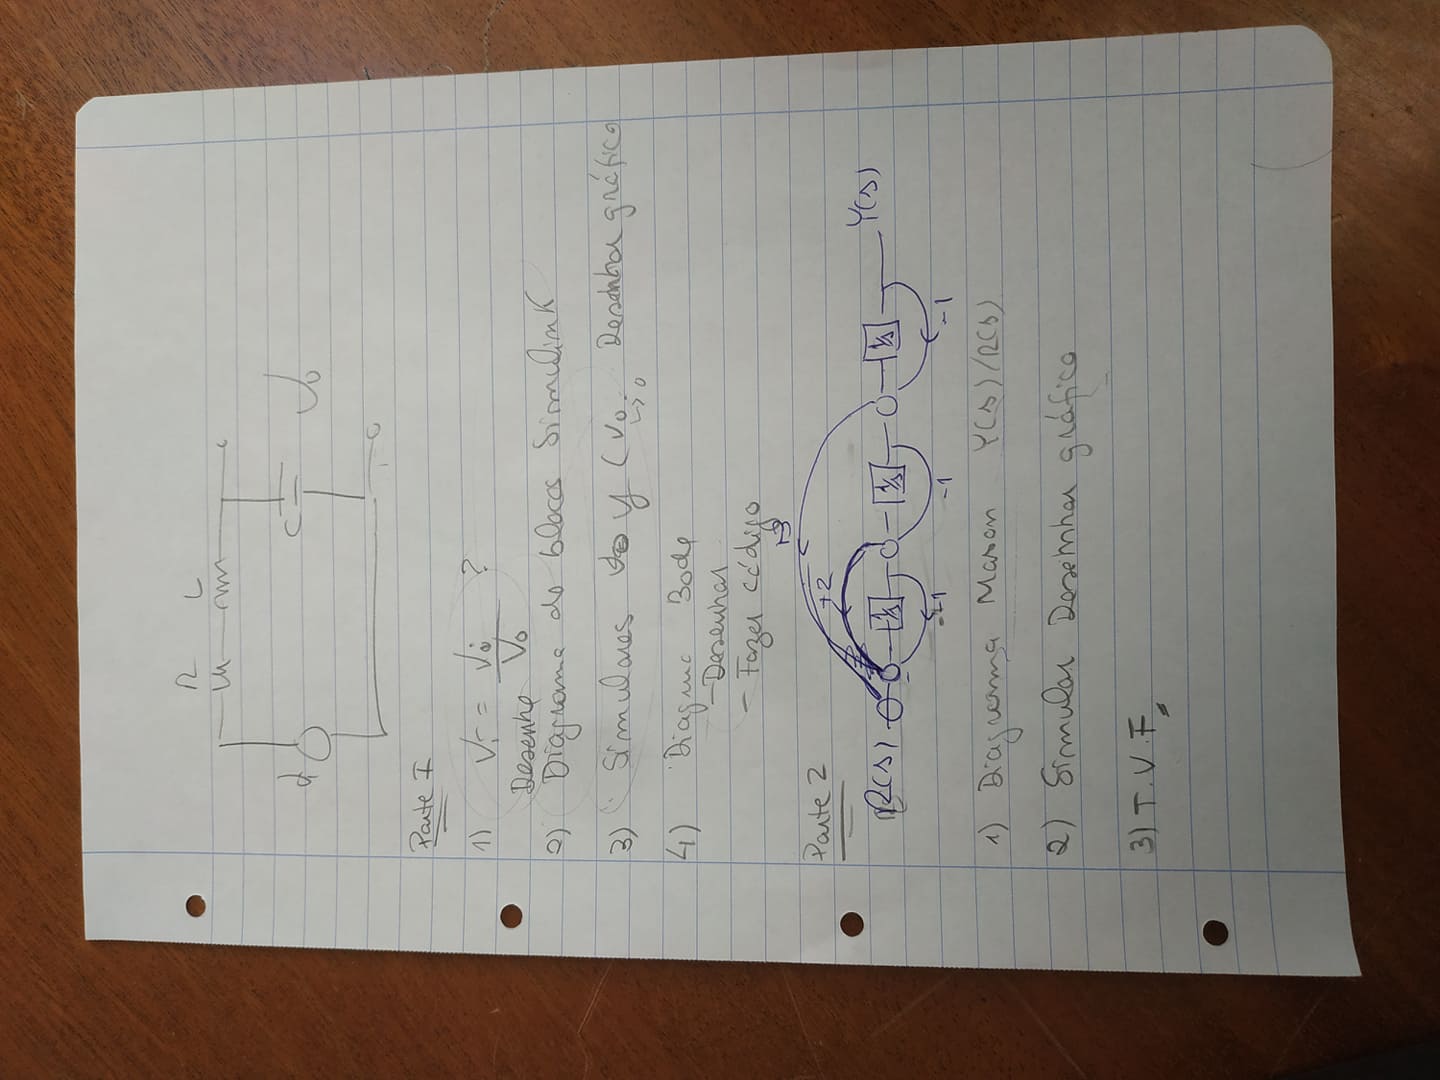 R L
C Vo
Parte I
1) Vi = Vi / Vo ?
Desenhe
2) Diagrama de blocos Simulink
3) Simulares y (Vo → 0 Desenhar gráfico
4) Diagrama Bode
- Desenhar
- Fazer código
Parte 2
+2
R(s) 1/s 1/s 1/s Y(s)
-1 -1 -1
1) Diagrama Mason Y(s)/R(s)
2) Simular Desenhar gráfico
3) T.V.F.